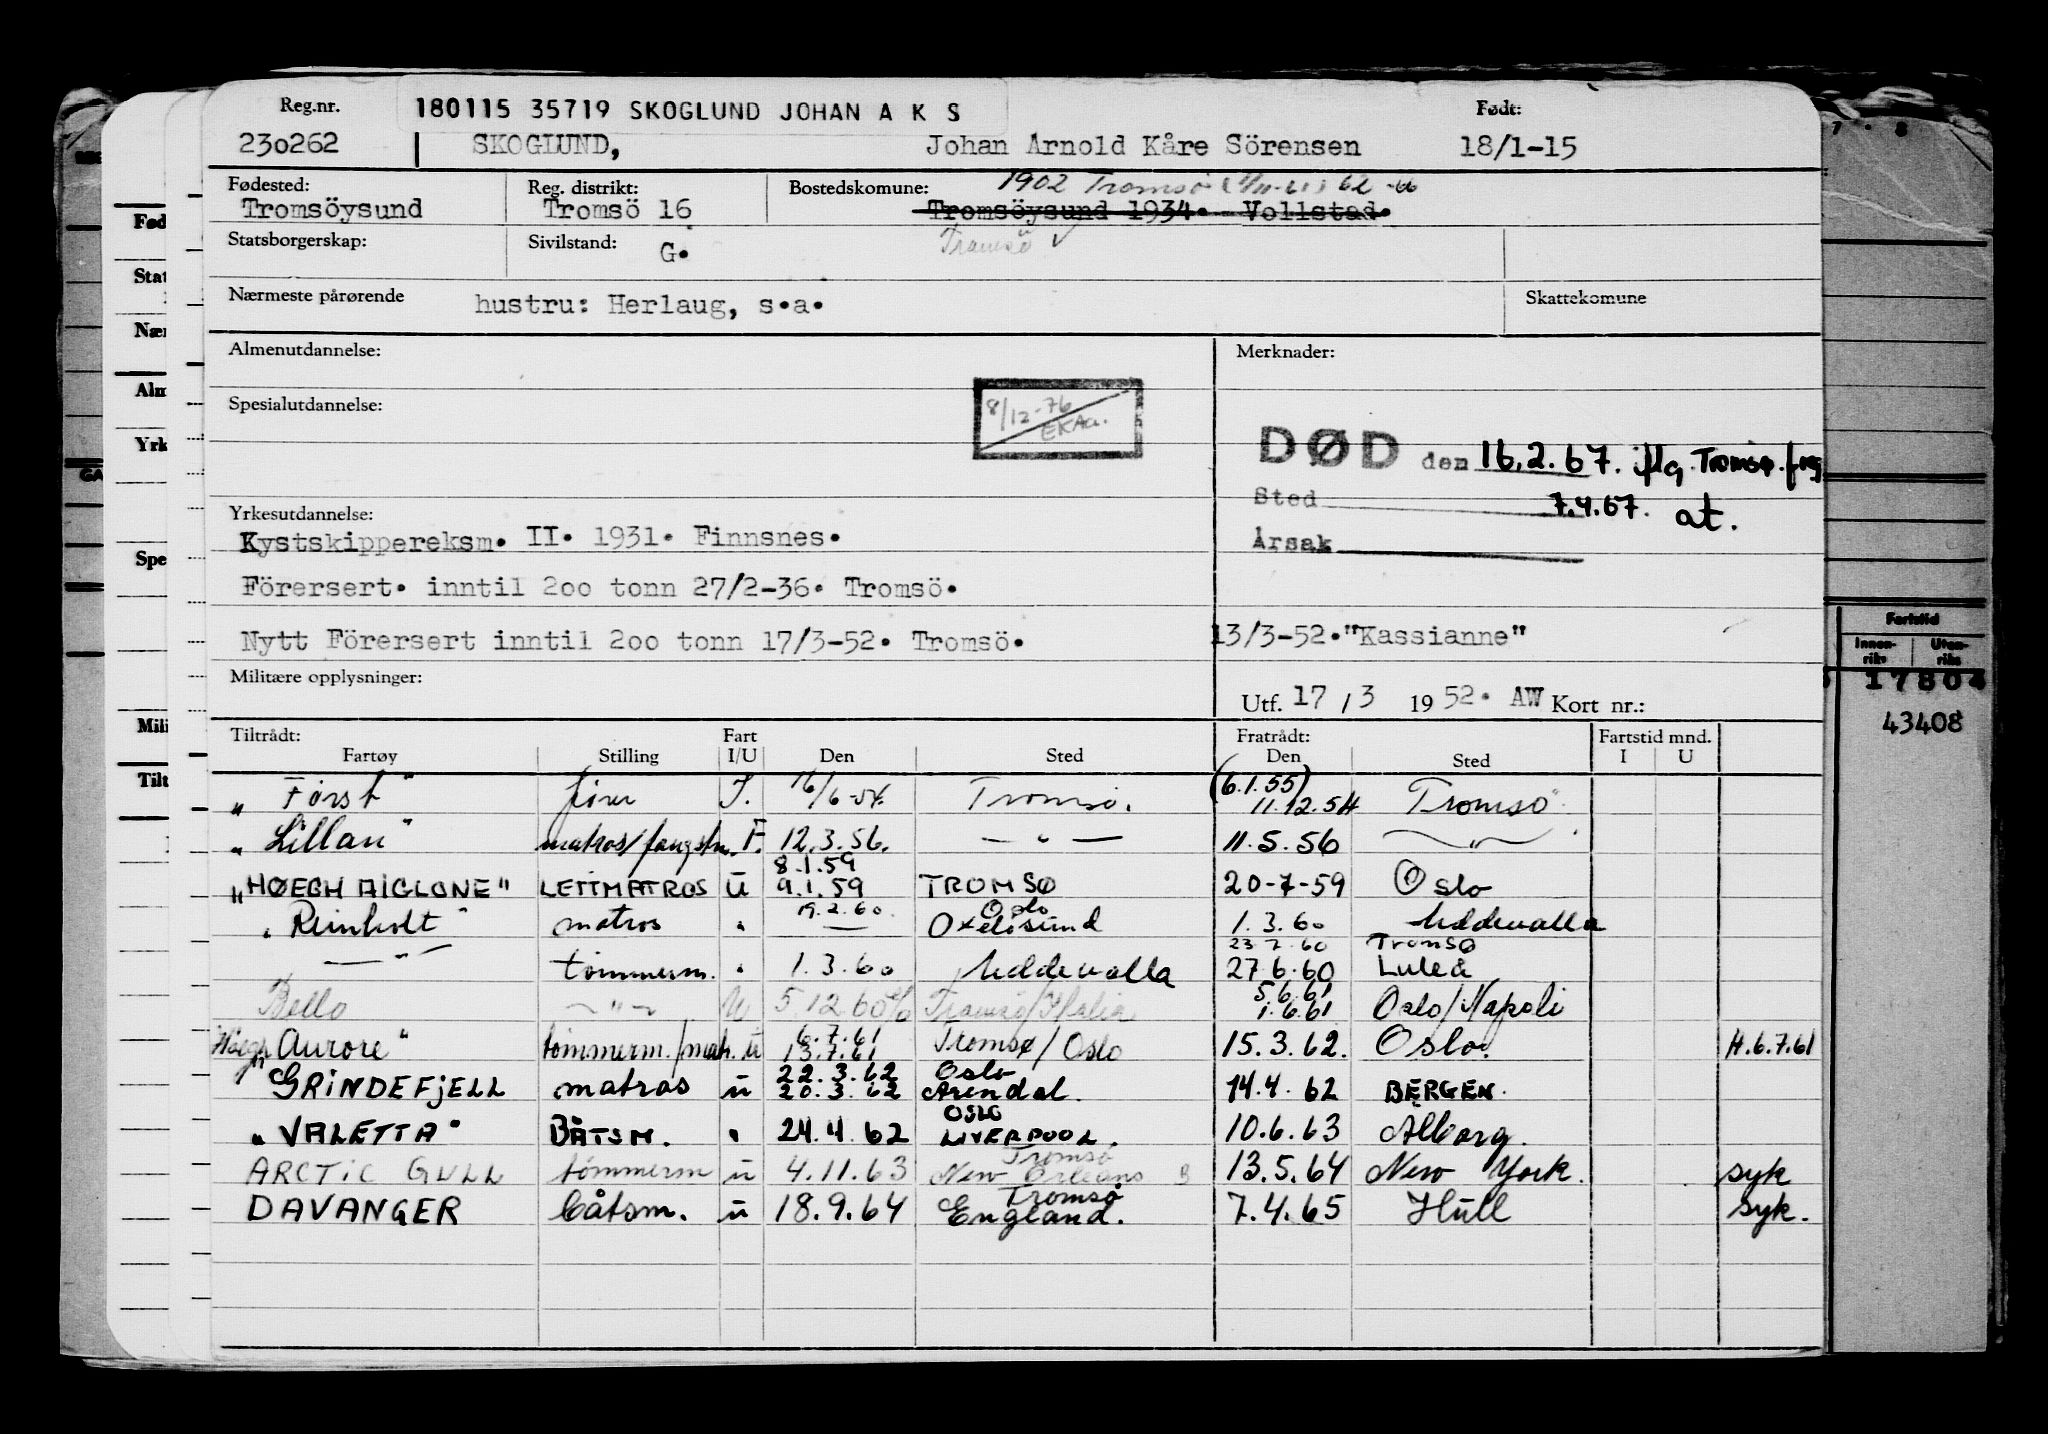 Reg.nr. 180115 35719 SKOGLUND JOHAN A K S Født:
230262 SKOGLUND, Johan Arnold Kåre Sörensen 18/1-15
Fødested: Reg. distrikt: Bostedskomune: 1902 Tromsö 62 -66
Tromsöysund Tromsö 16 Tromsöysund 1934. Vollstad.
Statsborgerskap: Sivilstand: G. Tromsö
Nærmeste pårørende hustru: Herlaug, s.a. Skattekomune
Almenutdannelse: Merknader:
Spesialutdannelse: 8/12-76
DØD den 16.2.67. iflg. Tromsø f.reg
Sted 7.4.67. at.
Årsak
Yrkesutdannelse:
Kystskippereksm. II. 1931. Finnsnes.
Förersert. inntil 2oo tonn 27/2-36. Tromsö.
Nytt Förersert inntil 2oo tonn 17/3-52. Tromsö. 13/3-52."Kassianne"
Militære opplysninger: Utf. 17 / 3 19 52. AW Kort nr.:
Tiltrådt: Fart Fratrådt: Fartstid mnd.
Fartøy Stilling I/U Den Sted Den Sted I U
"Först" fører I. 16/6-54. Tromsø. (6.1.55) 11.12.54 Tromsö
"Lillan" matros/fangstm. F. 12.3.56. — " — 11.5.56 — " —
8.1.59
"HØEGH AIGLONE" LETTMATROS U 9.1.59 TROMSØ 20-7-59 Oslo
19.2.60. Oslo
"Reinholt" matros " — Oxelösund 1.3.60 Uddevalla
23.7.60 Tromsø
— " — tömmerm. " 1.3.60 Uddevalla 27.6.60 Luleå
5.6.61
Bello — " — U 5.12.60 Tromsø/Italia 1.6.61 Oslo/Napoli
6.7.61
Høegh "Aurore" tömmerm./matr. U 13.7.61 Tromsø/Oslo 15.3.62. Oslo. H.6.7.61
22.3.62 Oslo
"GRINDEFJELL matros U 20.3.62 Arendal. 14.4.62 BERGEN.
OSLO
"VALETTA" BÅTSM. " 24.4.62 LIVERPOOL. 10.6.63 Alborg.
Tromsø
ARCTIC GULL tömmerm U 4.11.63 New Orleans B 13.5.64 New York. syk
Tromsø
DAVANGER båtsm. U 18.9.64 England. 7.4.65 Hull syk.
Fød
Stat
Nær
Alm
Yrk
Spe
Mili
Tilt
7 . 8
GA
Fartstid
Innen-riks Uten-riks
17804
43408